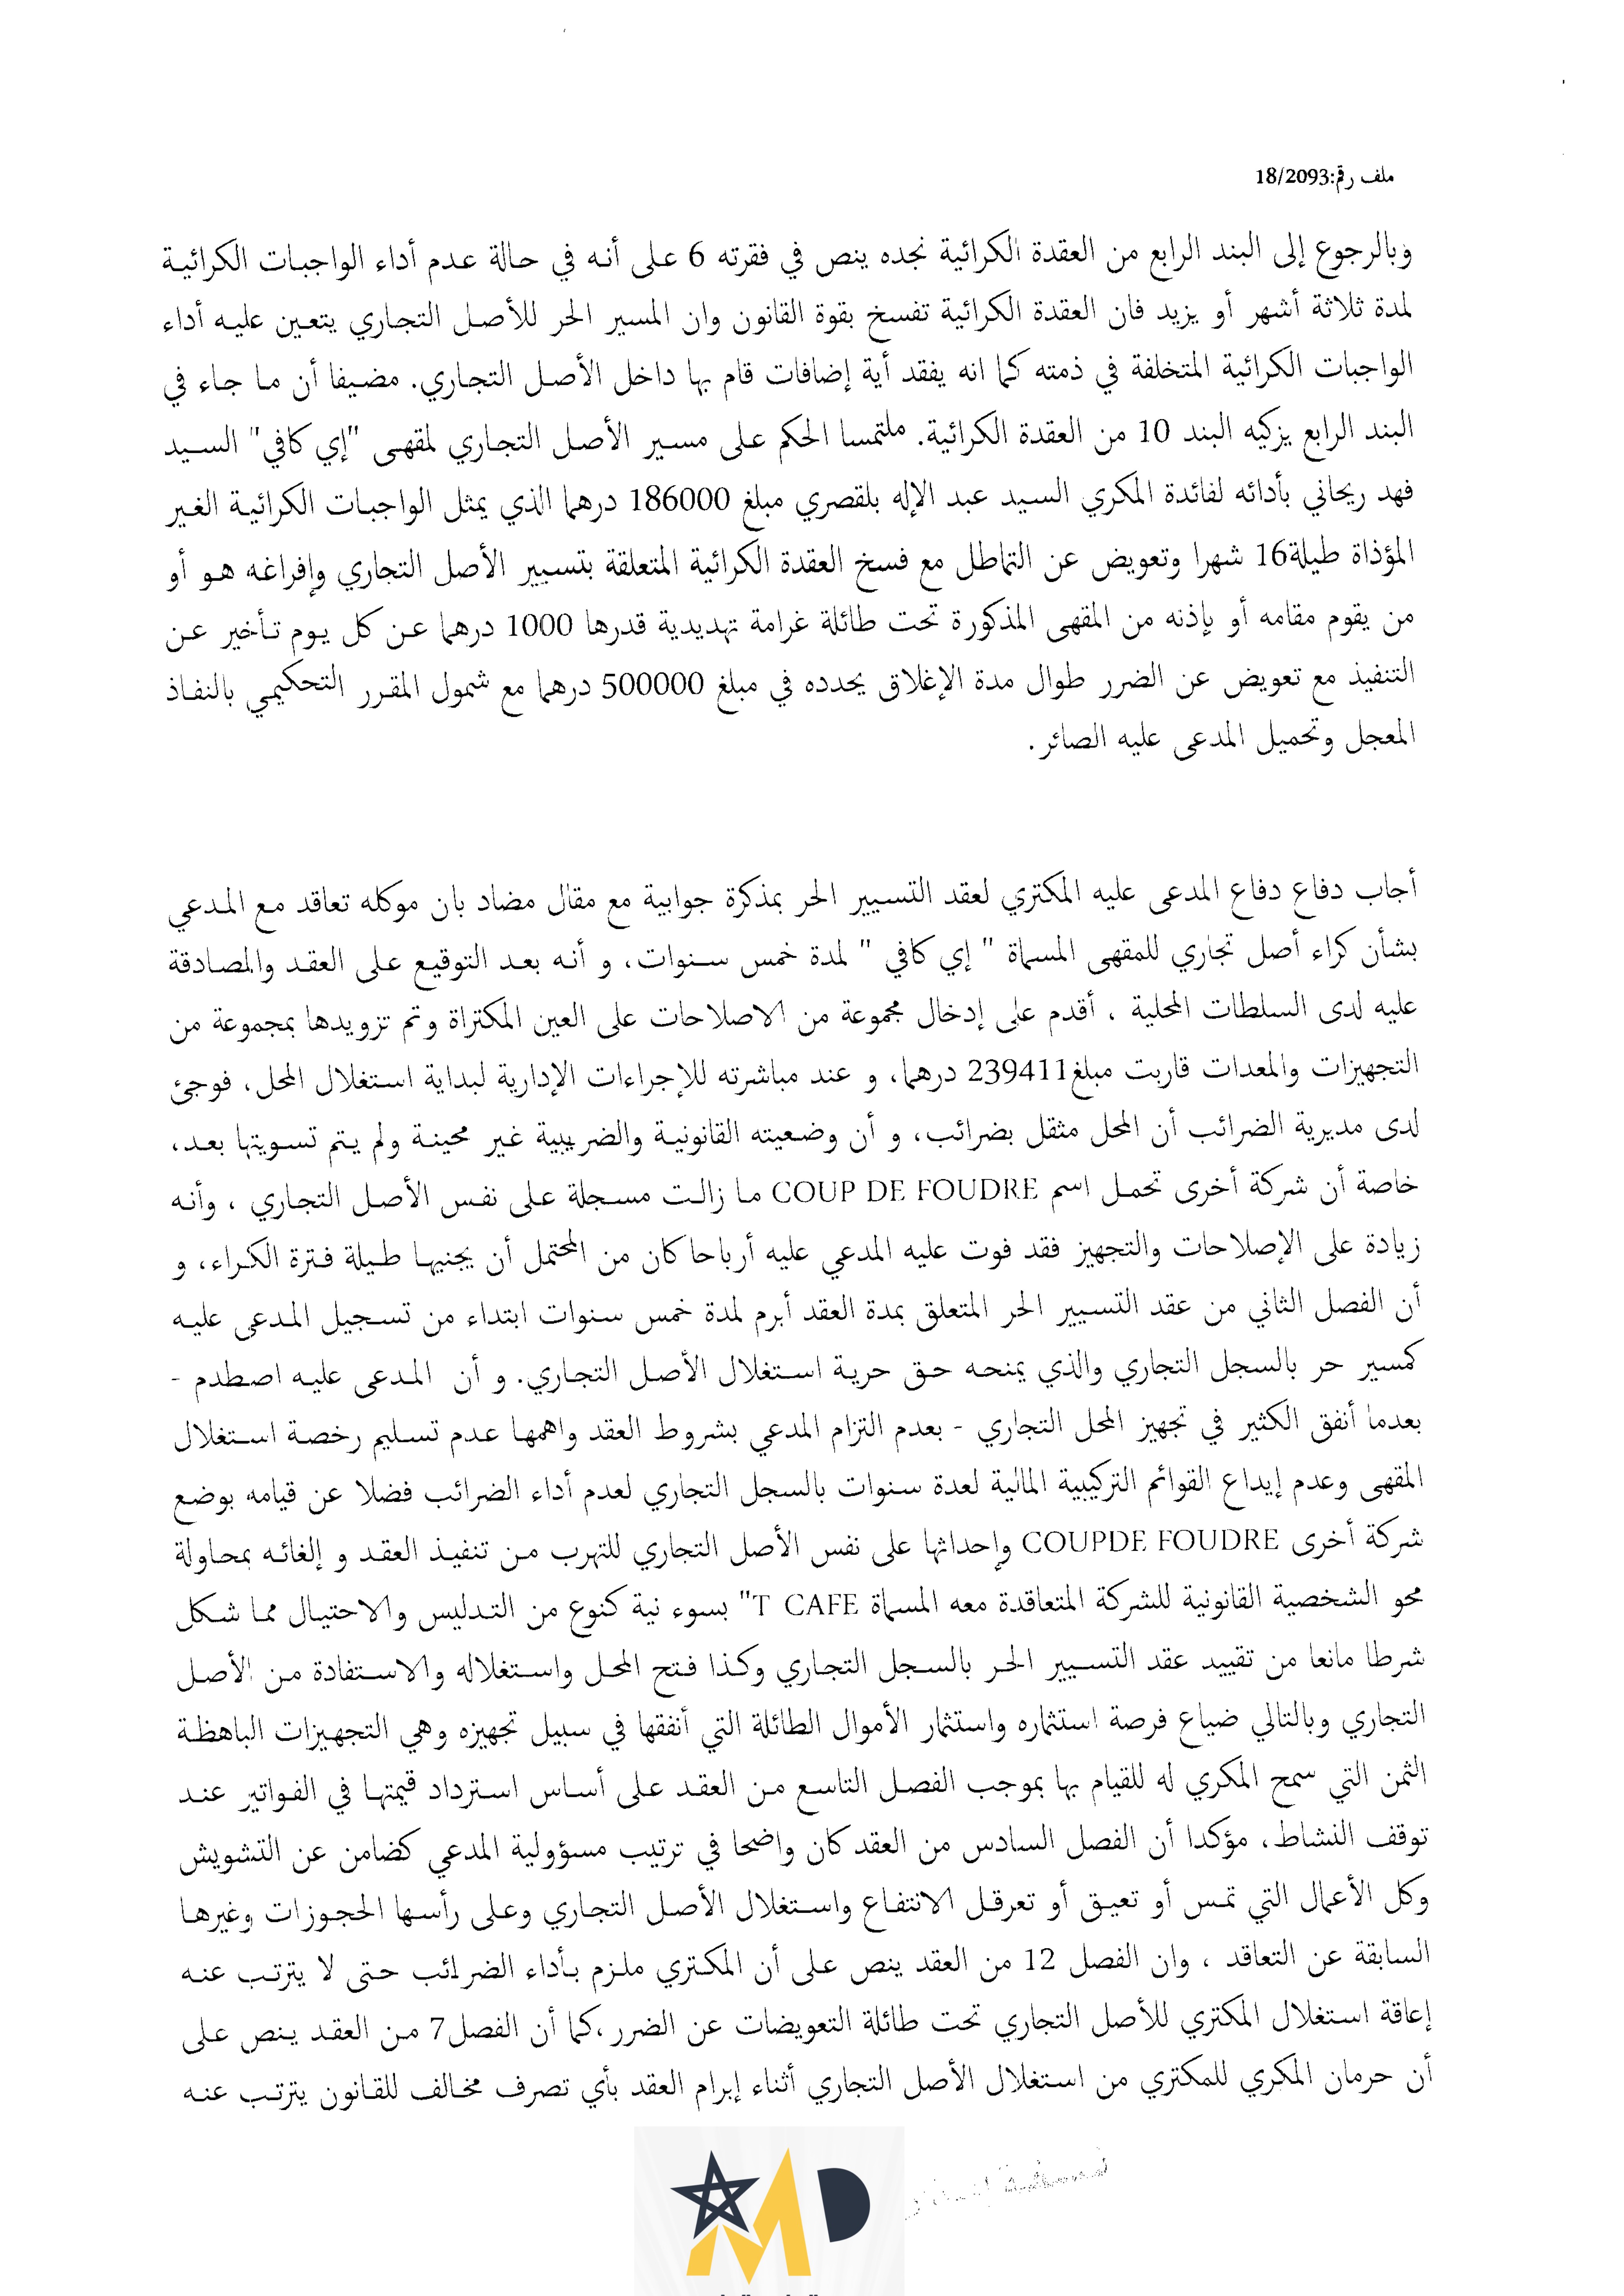 ملف رقم:18/2093
وبالرجوع إلى البند الرابع من العقدة الكرائية نجده ينص في فقرته 6 على أنه في حالة عدم أداء الواجبات الكرائية
لمدة ثلاثة أشهر أو يزيد فان العقدة الكرائية تفسخ بقوة القانون وان المسير الحر للأصل التجاري يتعين عليه أداء
الواجبات الكرائية المتخلفة في ذمته كما انه يفقد أية إضافات قام بها داخل الأصل التجاري. مضيفا أن ما جاء في
البند الرابع يزكيه البند 10 من العقدة الكرائية. ملتمسا الحكم على مسير الأصل التجاري لمقهى "إي كافي" السيد
فهد ريحاني بأدائه لفائدة المكري السيد عبد الإله بلقصري مبلغ 186000 درهما الذي يمثل الواجبات الكرائية الغير
المؤذاة طيلة16 شهرا وتعويض عن التماطل مع فسخ العقدة الكرائية المتعلقة بتسيير الأصل التجاري وإفراغه هو أو
من يقوم مقامه أو بإذنه من المقهى المذكورة تحت طائلة غرامة تهديدية قدرها 1000 درهما عن كل يوم تأخير عن
التنفيذ مع تعويض عن الضرر طوال مدة الإغلاق يحدده في مبلغ 500000 درهما مع شمول المقرر التحكيمي بالنفاذ
المعجل وتحميل المدعى عليه الصائر.
أجاب دفاع دفاع المدعى عليه المكتري لعقد التسيير الحر بمذكرة جوابية مع مقال مضاد بان موكله تعاقد مع المدعي
بشأن كراء أصل تجاري للمقهى المسماة " إي كافي " لمدة خمس سنوات، و أنه بعد التوقيع على العقد والمصادقة
عليه لدى السلطات المحلية ، أقدم على إدخال مجموعة من الاصلاحات على العين المكتراة وتم تزويدها بمجموعة من
التجهيزات والمعدات قاربت مبلغ239411 درهما، و عند مباشرته للإجراءات الإدارية لبداية استغلال المحل، فوجئ
لدى مديرية الضرائب أن المحل مثقل بضرائب، و أن وضعيته القانونية والضريبية غير محينة ولم يتم تسويتها بعد،
خاصة أن شركة أخرى تحمل اسم COUP DE FOUDRE ما زالت مسجلة على نفس الأصل التجاري ، وأنه
زيادة على الإصلاحات والتجهيز فقد فوت عليه المدعي عليه أرباحا كان من المحتمل أن يجنيها طيلة فترة الكراء، و
أن الفصل الثاني من عقد التسيير الحر المتعلق بمدة العقد أبرم لمدة خمس سنوات ابتداء من تسجيل المدعى عليه
كمسير حر بالسجل التجاري والذي يمنحه حق حرية استغلال الأصل التجاري. و أن المدعى عليه اصطدم -
بعدما أنفق الكثير في تجهيز المحل التجاري - بعدم التزام المدعي بشروط العقد واهمها عدم تسليم رخصة استغلال
المقهى وعدم إيداع القوائم التركيبية المالية لعدة سنوات بالسجل التجاري لعدم أداء الضرائب فضلا عن قيامه بوضع
شركة أخرى COUPDE FOUDRE وإحداثها على نفس الأصل التجاري للتهرب من تنفيذ العقد و إلغائه بمحاولة
محو الشخصية القانونية للشركة المتعاقدة معه المسماة T CAFE" بسوء نية كنوع من التدليس والاحتيال مما شكل
شرطا مانعا من تقييد عقد التسيير الحر بالسجل التجاري وكذا فتح المحل واستغلاله والاستفادة من الأصل
التجاري وبالتالي ضياع فرصة استثماره واستثمار الأموال الطائلة التي أنفقها في سبيل تجهيزه وهي التجهيزات الباهظة
الثمن التي سمح المكري له للقيام بها بموجب الفصل التاسع من العقد على أساس استرداد قيمتها في الفواتير عند
توقف النشاط، مؤكدا أن الفصل السادس من العقد كان واضحا في ترتيب مسؤولية المدعي كضامن عن التشويش
وكل الأعمال التي تمس أو تعيق أو تعرقل الانتفاع واستغلال الأصل التجاري وعلى رأسها الحجوزات وغيرها
السابقة عن التعاقد ، وان الفصل 12 من العقد ينص على أن المكتري ملزم بأداء الضرائب حتى لا يترتب عنه
إعاقة استغلال المكتري للأصل التجاري تحت طائلة التعويضات عن الضرر ،كما أن الفصل7 من العقد ينص على
أن حرمان المكري للمكتري من استغلال الأصل التجاري أثناء إبرام العقد بأي تصرف مخالف للقانون يترتب عنه